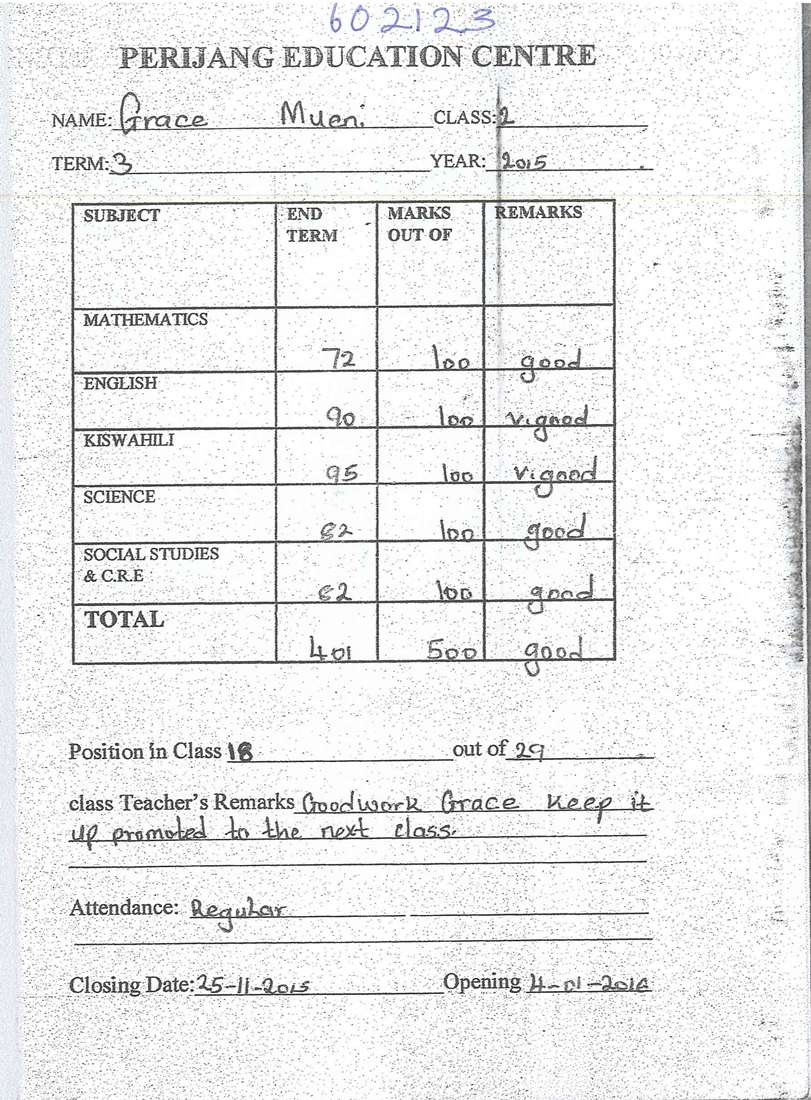 602123
PERIJANG EDUCATION CENTRE
NAME: Grace Mueni CLASS: 2
TERM: 3 YEAR: 2015
SUBJECT END TERM MARKS OUT OF REMARKS
MATHEMATICS 72 100 good
ENGLISH 90 100 v.good
KISWAHILI 95 100 v.good
SCIENCE 82 100 good
SOCIAL STUDIES
& C.R.E 82 100 good
TOTAL 401 500 good
Position in Class 18 out of 29
class Teacher's Remarks Goodwork Grace keep it
up promoted to the next class.
Attendance: Regular
Closing Date: 25-11-2015 Opening 4-01-2016